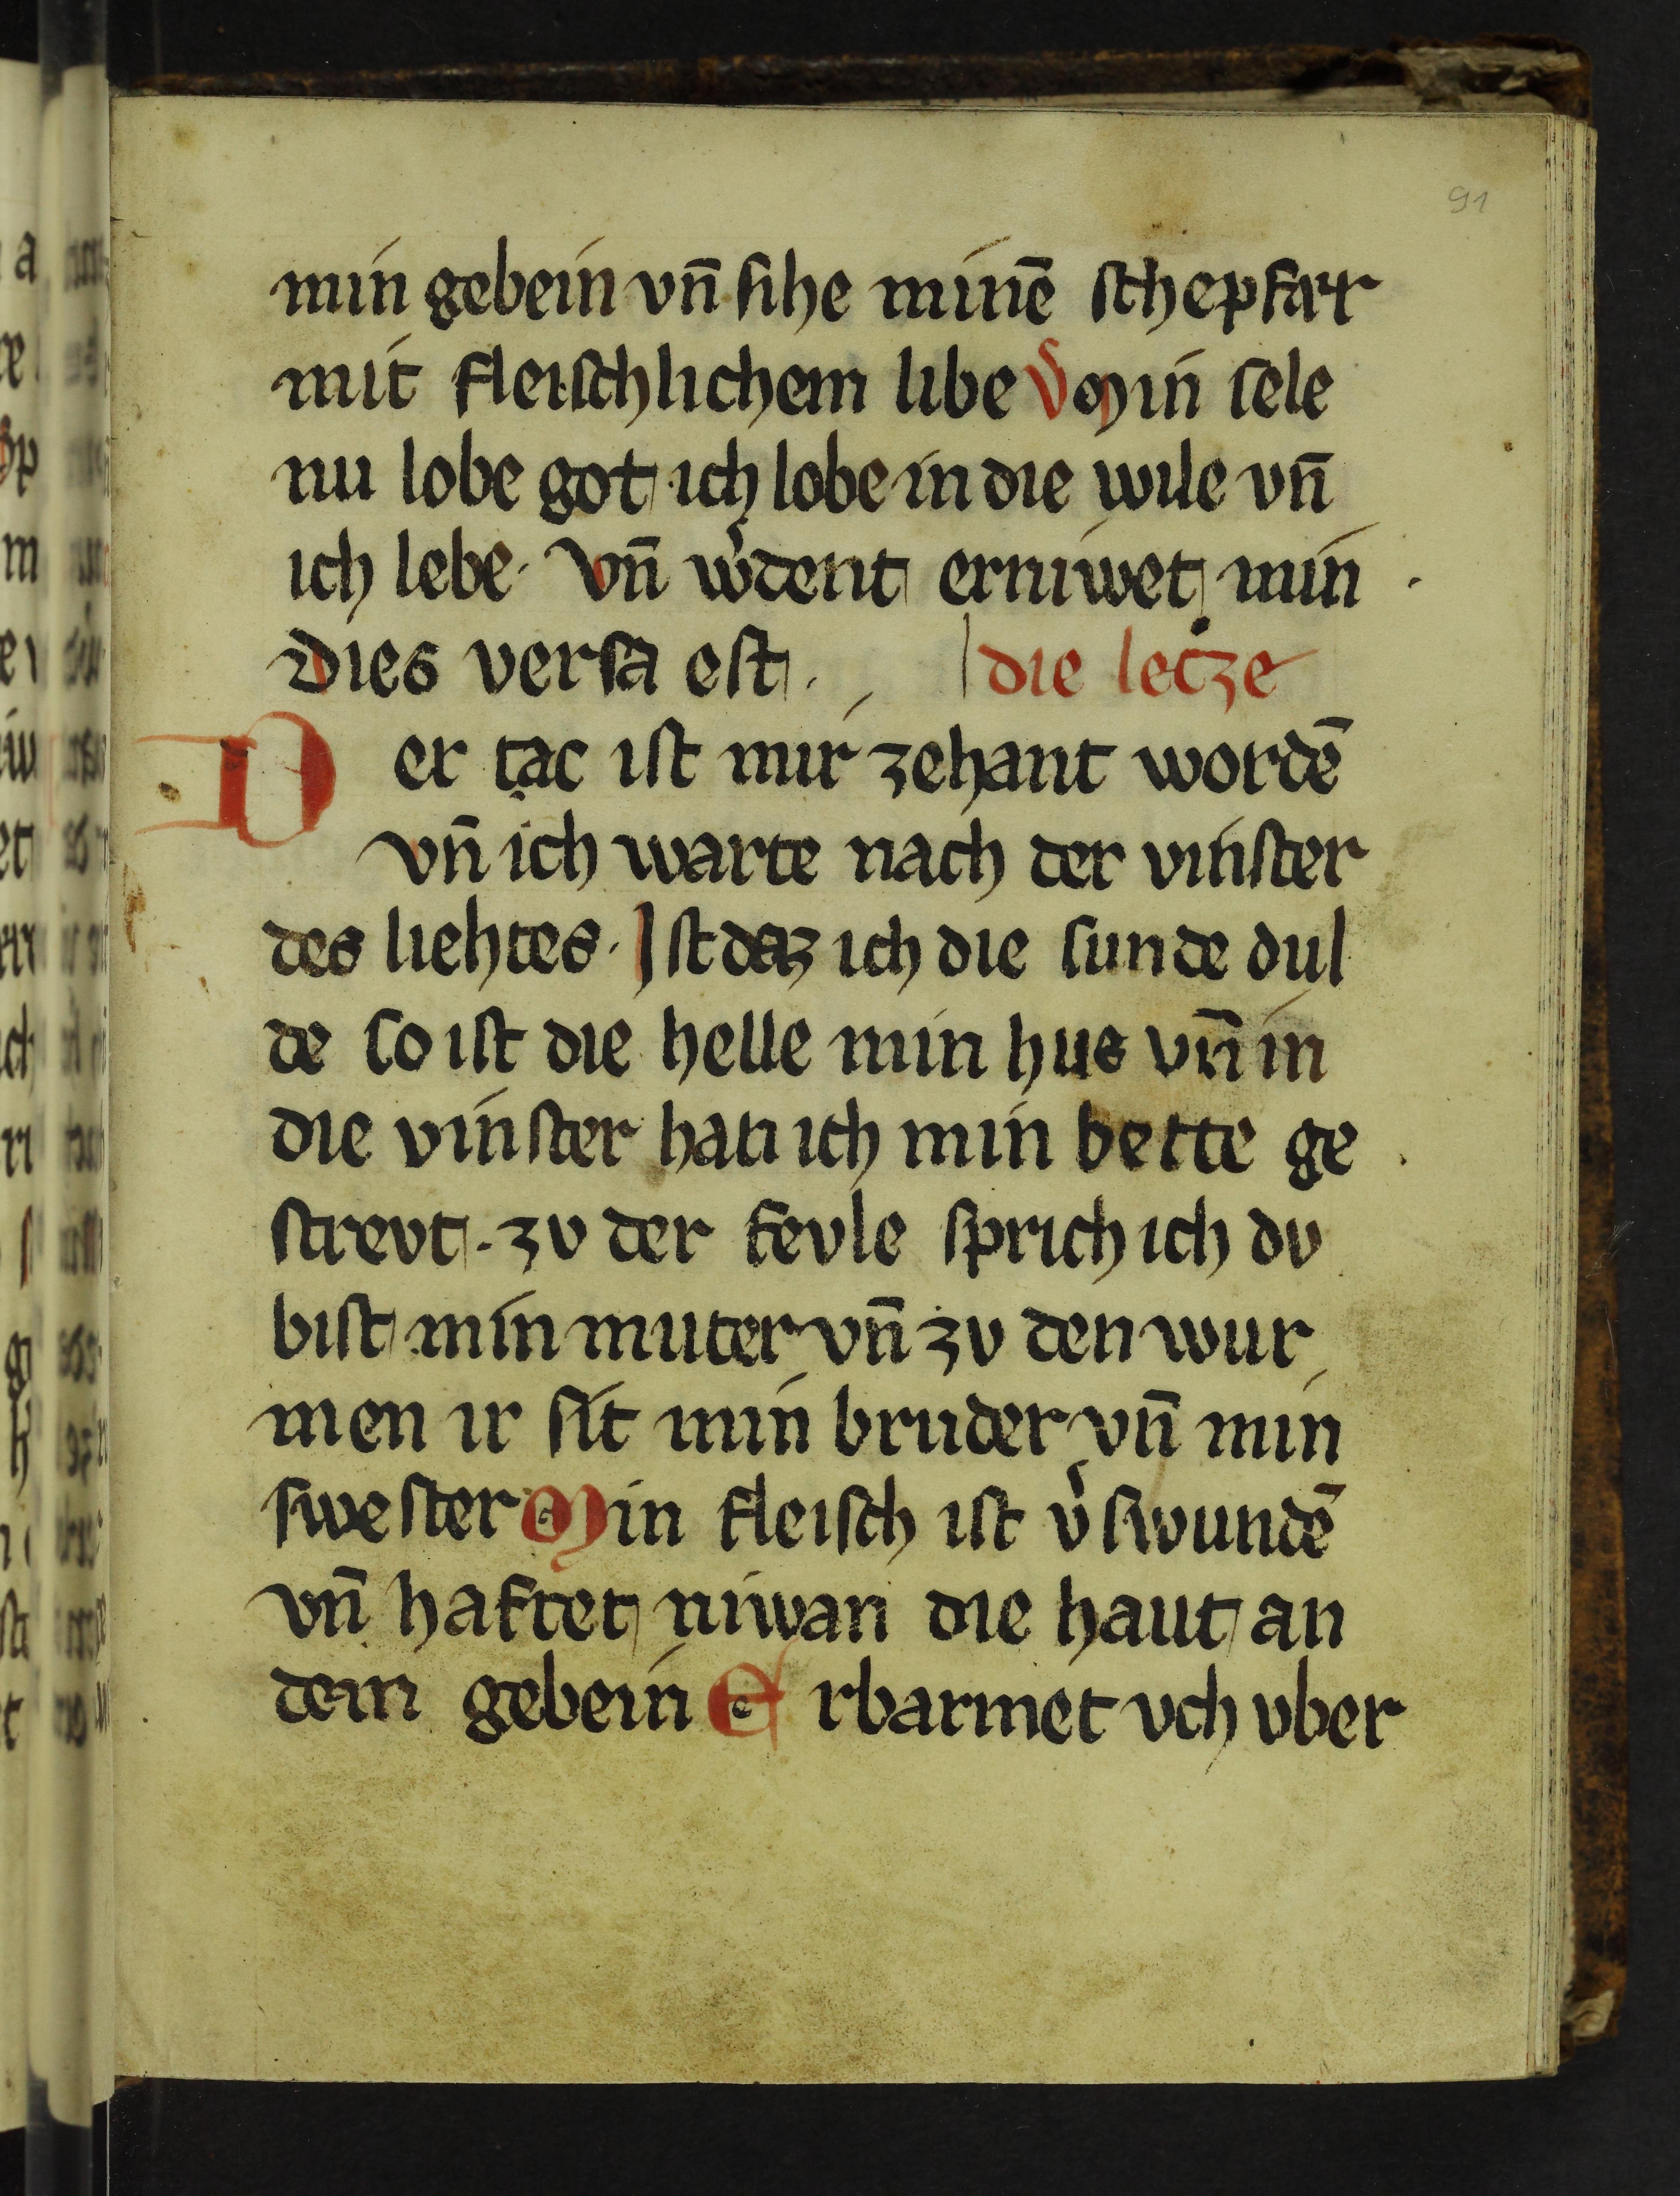 91
min gebein vn̄ sihe minē schepfær
mit fleischlichem libe v̉ Min sele
nu lobe got ich lobe in die wile vn̄
ich lebe. Vn̄ w̉dent erniwet min
Dies versa est. die letze
Der tac ist mir zehant wordē
vn̄ ich warte nach der vinster
des liehtes. Ist daz ich die sunde dul
de so ist die helle min hus vn̄ in
die vinster han ich min bette ge
strevt. zv der fevle sprich ich dv
bist min muter vn̄ zv den wur
men ir sit min bruder vn̄ min
swester Min fleisch ist v̉swundē
vn̄ haftet niwan die haut an
dem gebein Erbarmet vch vber